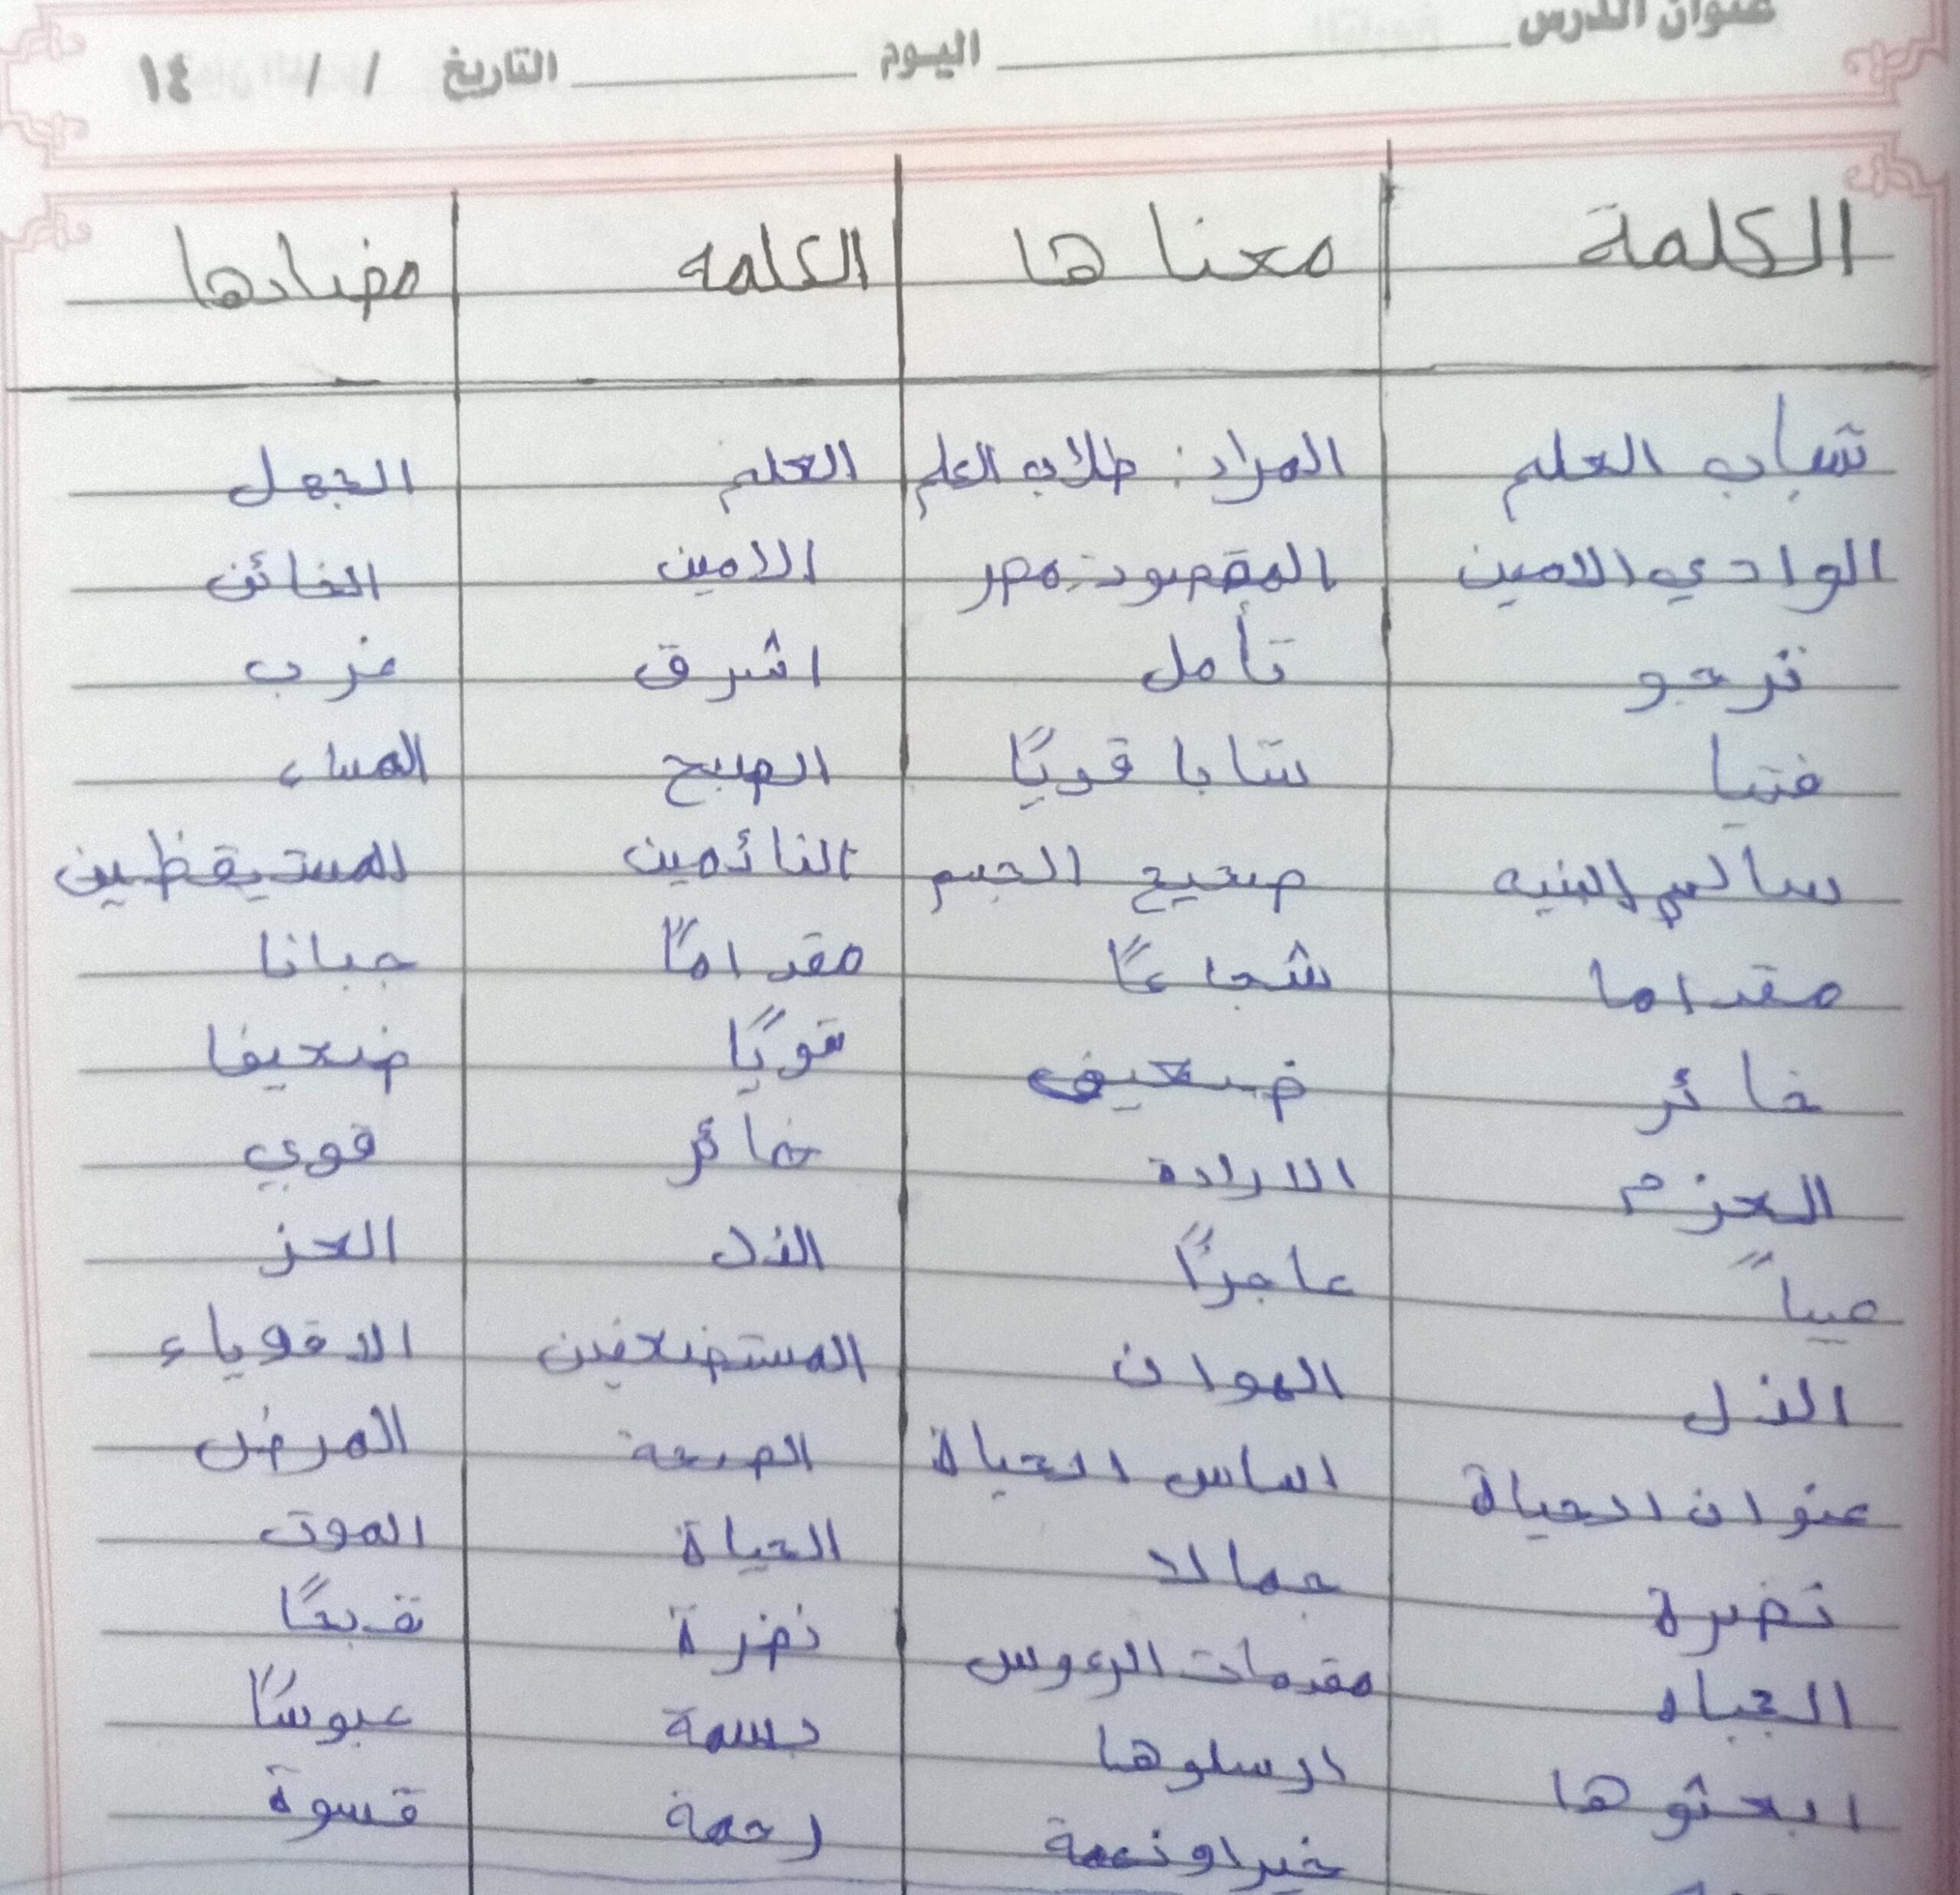 عنوان الدرس اليوم التاريخ / / ١٤
الكلمة معناها الكلمه مضادها
شباب العلم المراد: طلاب العلم العلم الجهل
الوادي الامين المقصود: مصر الامين الخائن
ترجو تأمل اشرق غرب
فتيا شابا قويًا الصبح المساء
سالم البنيه صحيح الجسم النائمين المستيقظين
مقداما شجاعًا مقدامًا جبانا
خائر ضعيف قويًا ضعيفا
العزم الارادة خائر قوي
عياً عاجزًا الذل العز
الذل الهوان المستضعفين الاقوياء
عنوان الحياة اساس الحياة الصحة المرض
نضرة جمالا الحياة الموت
الجباه مقدمات الرءوس نضرة قبحًا
ابعثوها ارسلوها بسمة عبوسًا
خيرا ونعمة رحمة قسوة